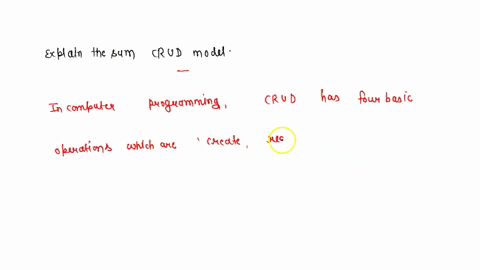 Explain the sum CRUD model.
In computer programming, CRUD has four basic
operations which are ' create, rea